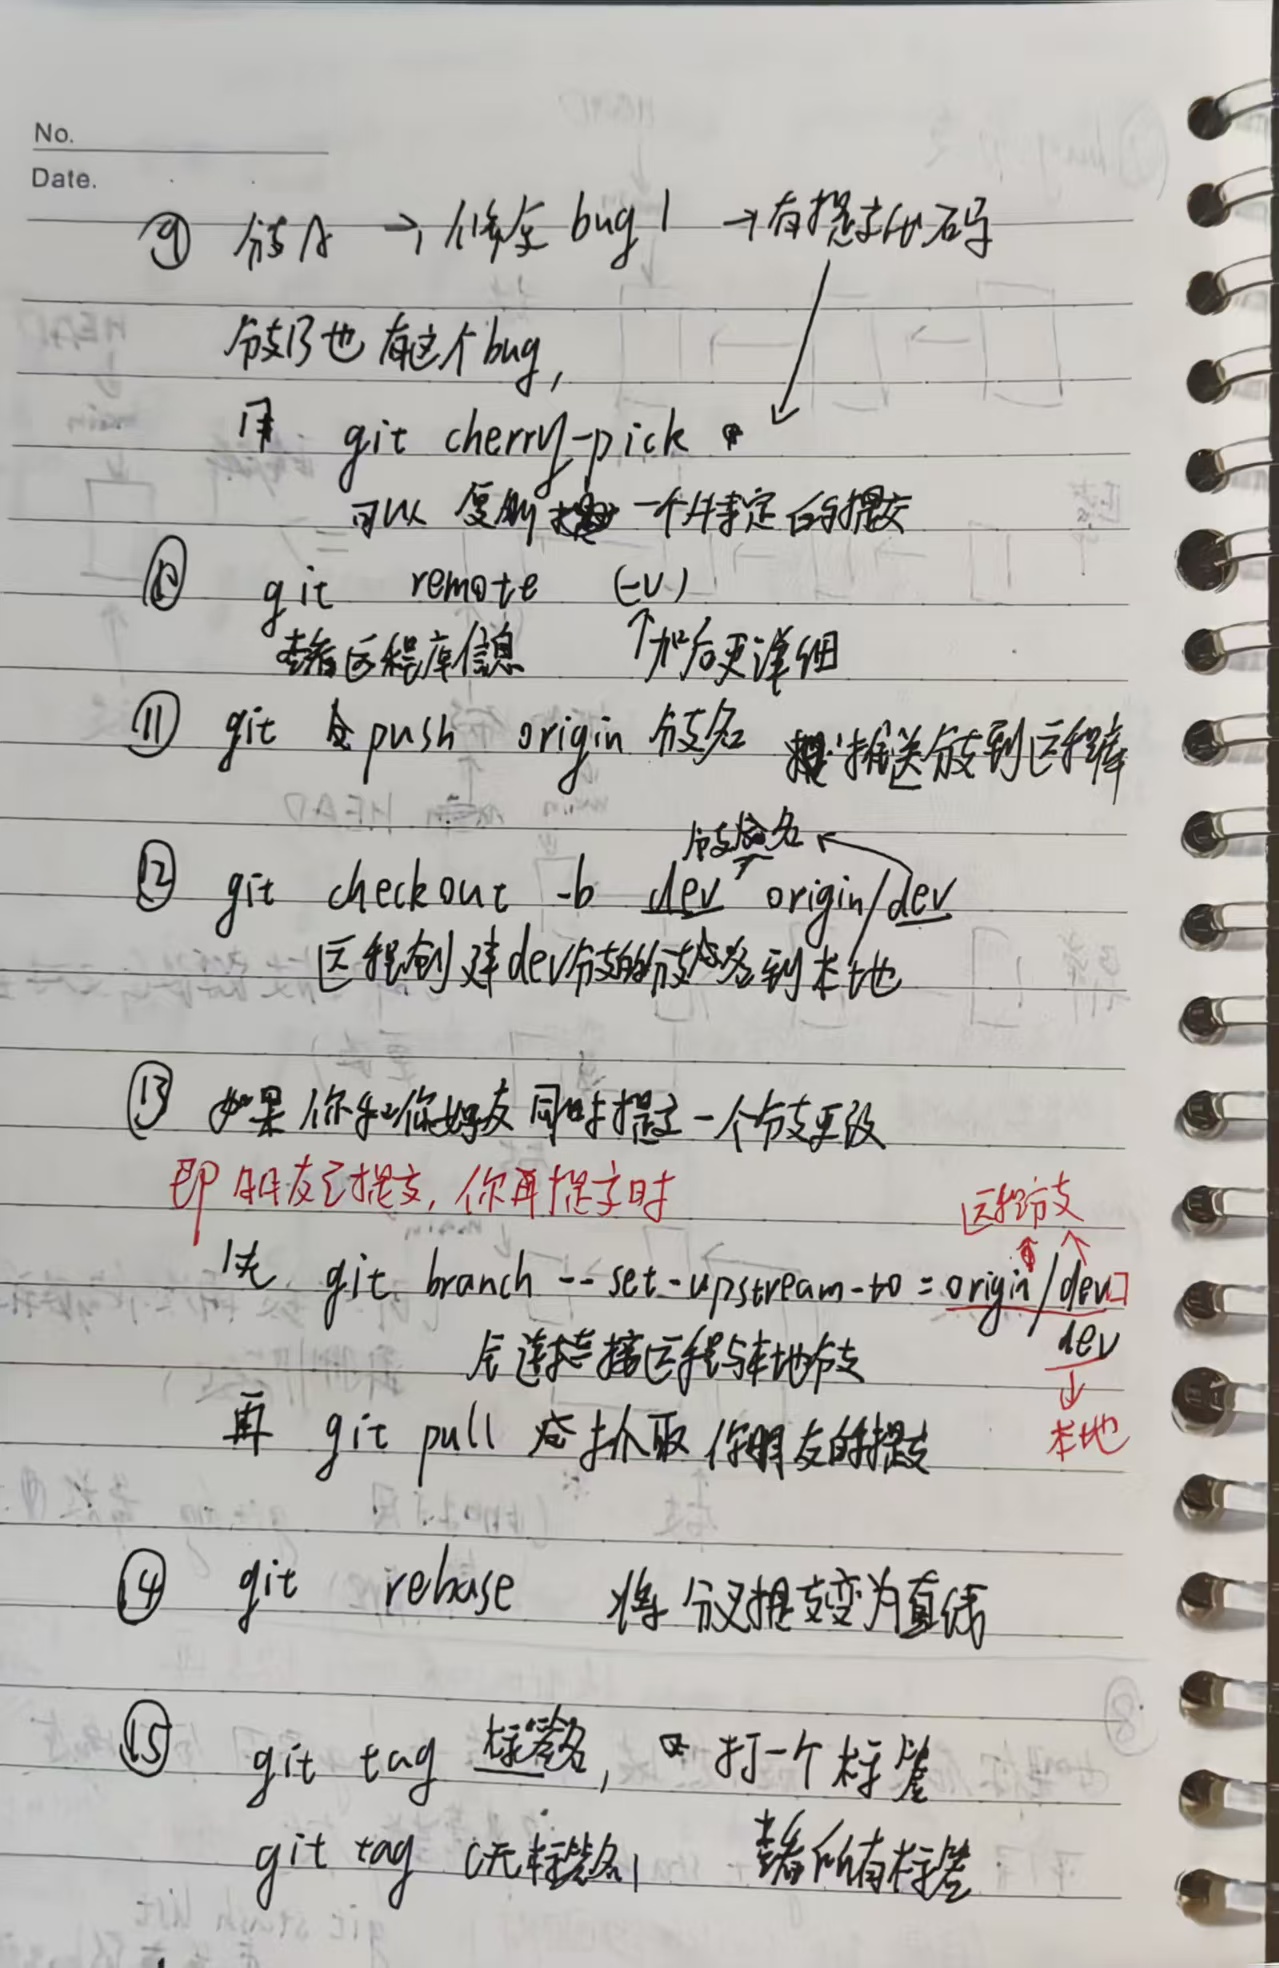 No.
Date.
⑨ 分支A → 修复 bug 1 → 有提交代码
分支B也有这个bug,
用 git cherry-pick
可以复制一个特定的提交
⑩ git remote (-v)
查看远程库信息 ↑加后更详细
⑪ git push origin 分支名 推送分支到远程库
分支名
⑫ git checkout -b dev origin/dev
远程创建dev分支的分支名到本地
⑬ 如果你和你好友同时提交一个分支更改
即朋友已提交,你再提交时
远程分支
先 git branch --set-upstream-to = origin/dev
dev
后连接远程与本地分支
再 git pull 抓取你朋友的提交
本地
⑭ git rebase 将分叉提交变为直线
⑮ git tag 标签名, 打一个标签
git tag (无标签名) 查看所有标签